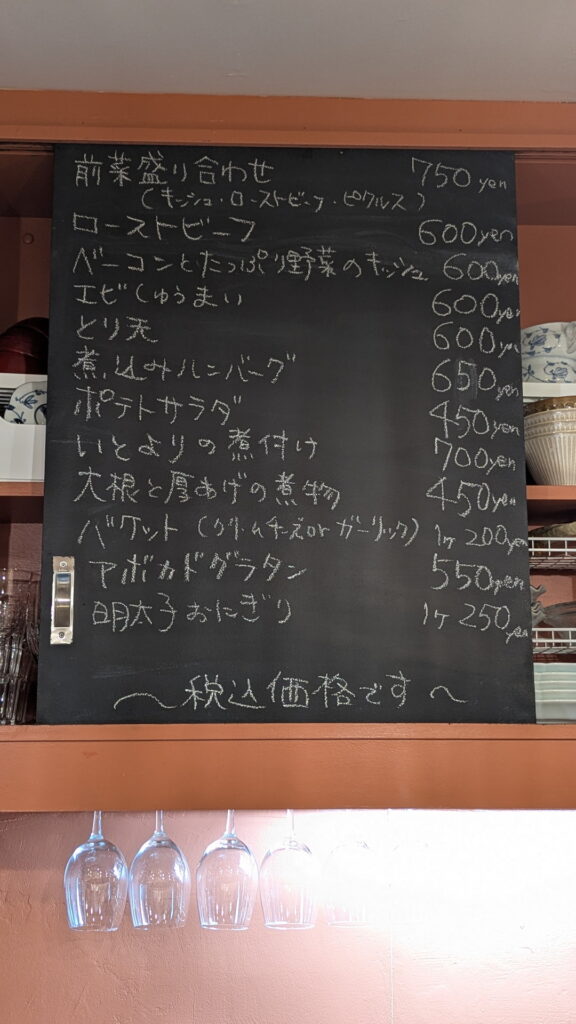 前菜盛り合わせ 750yen
(キッシュ・ローストビーフ・ピクルス)
ローストビーフ 600yen
ベーコンとたっぷり野菜のキッシュ 600yen
エビしゅうまい 600yen
とり天 600yen
煮込みハンバーグ 650yen
ポテトサラダ 450yen
いとよりの煮付け 700yen
大根と厚あげの煮物 450yen
バケット(クリームチーズorガーリック) 1ヶ200yen
アボカドグラタン 550yen
明太子おにぎり 1ヶ250yen
〜税込価格です〜